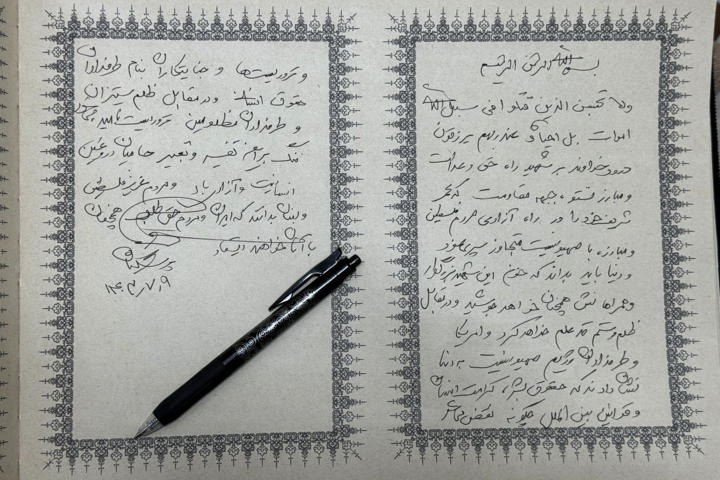 بسم الله الرحمن الرحیم
ولا تحسبن الذین قتلوا فی سبیل الله
امواتا بل احیاء عند ربهم یرزقون
درود خداوند بر شهید راه حق و عدالت
و مبارز نستوه جبهه مقاومت که عمر
شریف خود را در راه آزادی مردم فلسطین
و مبارزه با صهیونیست متجاوز سپری نمود
و دنیا باید بداند که خون این شهید بزرگوار
و همراهانش همچنان خواهد جوشید و در مقابل
ظلم و ستم قد علم خواهد کرد و امریکا
و طرفداران رژیم صهیونیست به دنیا
نشان دادند که حقوق بشر، کرامت انسان
و قوانین بین الملل چگونه نقض
و تروریست‌ها و جنایتکاران بنام طرفداران
حقوق انسان و در مقابل ظلم ستیزان
و طرفداران مظلومین تروریست نامیده
ننگ بر این تفسیر و تعبیر حامیان دروغین
انسانیت و آزادی باد و مردم عزیز فلسطین
و لبنان بدانند که ایران و مردم حق طلب همچنان
با آنها خواهند ایستاد
پزشکیان
۱۴۰۳/۷/۹